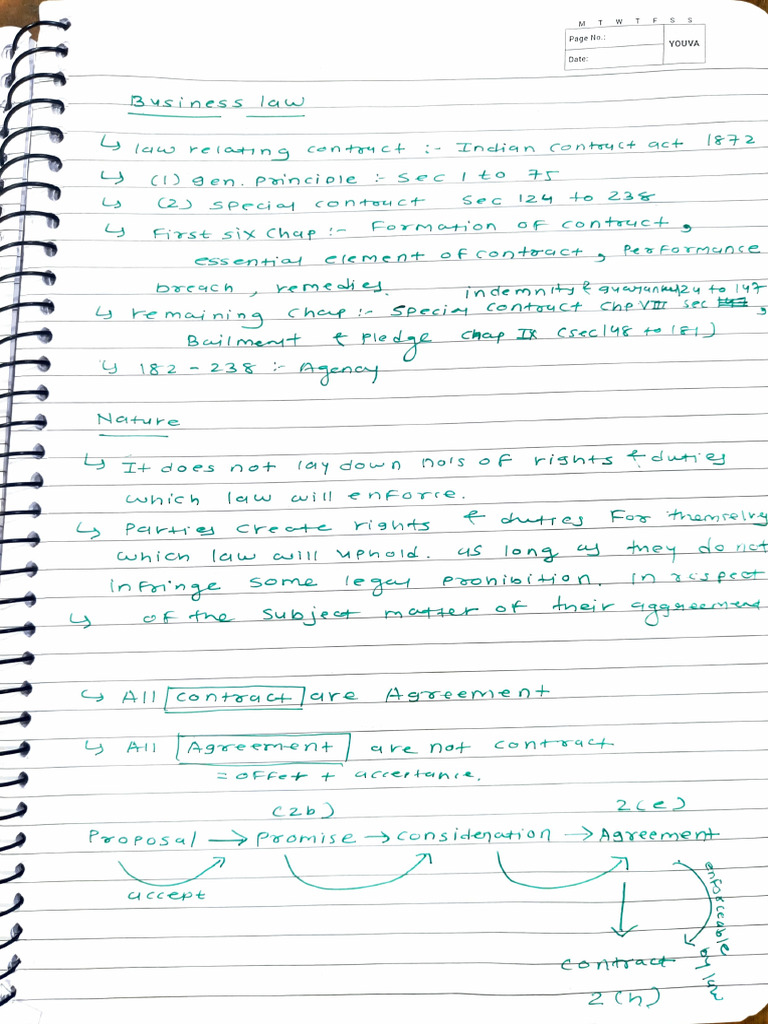 M T W T F S S
Page No.:
YOUVA
Date:
Business law
↳ law relating contract :- Indian contract act 1872
↳ (1) gen. principle :- Sec 1 to 75
↳ (2) special contract Sec 124 to 238
↳ First six Chap :- Formation of contract,
essential element of contract, Performance
breach, remedies. indemnity & guarantee 124 to 147
↳ remaining Chap :- Special contract Chp VIII sec ,
Bailment & Pledge Chap IX (sec 148 to 181)
↳ 182 - 238 :- Agency
Nature
↳ It does not lay down no's of rights & duties
which law will enforce.
↳ Parties create rights & duties For themselves
which law will uphold. as long as they do not
infringe some legal prohibition. in respect
↳ of the subject matter of their aggreement
↳ All contract are Agreement
↳ All Agreement are not contract
= offer + acceptance.
(2b) 2(e)
Proposal → Promise → consideration → Agreement
accept
enforceable by law
contract
2(h)